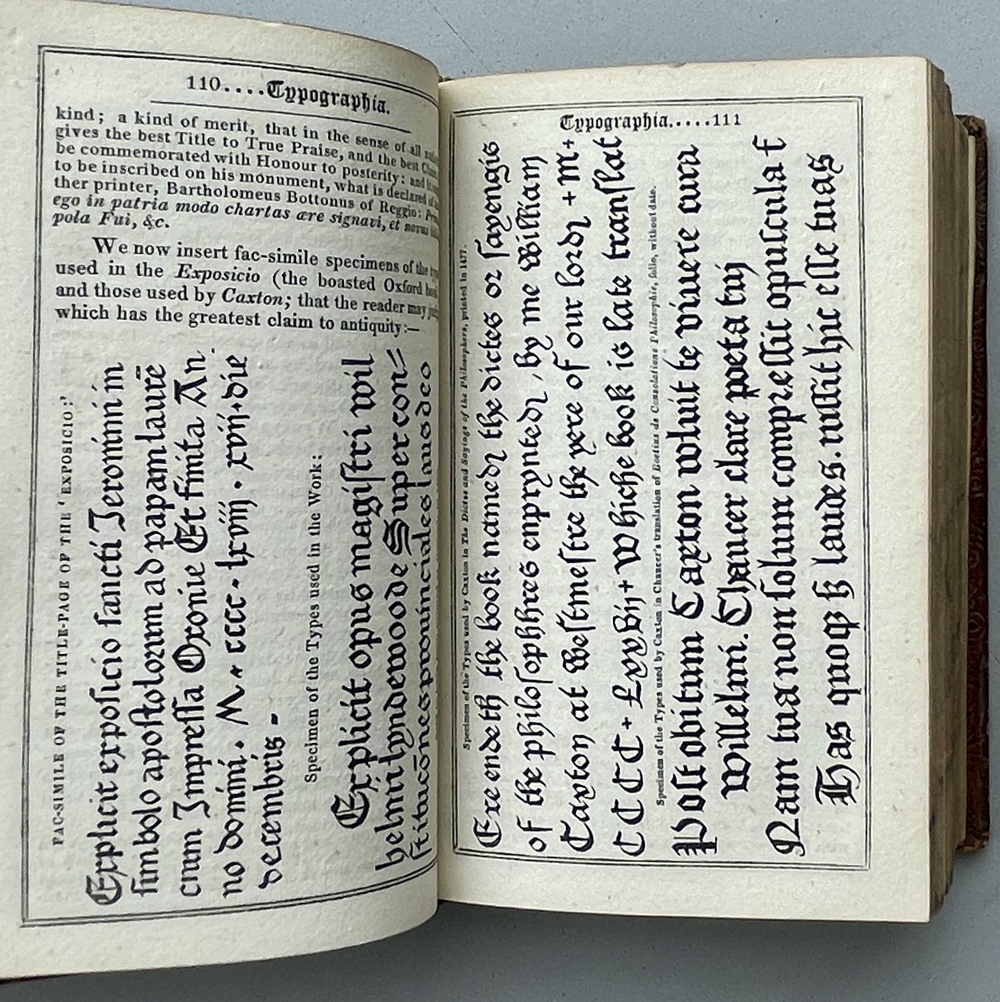 110....Typographia.
kind; a kind of merit, that in the sense of all
gives the best Title to True Praise, and the best
be commemorated with Honour to posterity: and
to be inscribed on his monument, what is declared of
ther printer, Bartholomeus Bottonus of Reggio:
ego in patria modo chartas ære signavi, et novus
pola Fui, &c.
We now insert fac-simile specimens of the
used in the Exposicio (the boasted Oxford
and those used by Caxton; that the reader may
which has the greatest claim to antiquity:—
FAC-SIMILE OF THE TITLE-PAGE OF THE 'EXPOSICIO:'
Explicit exposicio sancti Jeronimi in
simbolo apostolorum ad papam laurē
cium Impressa Oxonie Et finita An
no domini . M . cccc . lxviij . xvij . die
decembris -
Specimen of the Types used in the Work:
Explicit opus magistri wil
helmi lyndewoode Super con=
stitucōnes prouinciales laus deo
Typographia.....111
Specimen of the Types used by Caxton in The Dictes and Sayings of the Philosophers, printed in 1477.
Ere endeth the book named the dictes or sayengis
of the philosophhres enprynted, by me william
Caxton at westmestre the yere of our lord + M+
CCCC + Lxxvij+ Whiche book is late translat
Specimen of the Types used by Caxton in Chaucer's translation of Boetius de Consolatione Philosophie, folio, without date.
Post obitum Caxton voluit te viuere cura
Willelmi. Chaucer clare poeta tuj
Nam tua non solum compressit opuscula f
Has quoqꝫ ꝫ laudes. iussit hic esse tuas